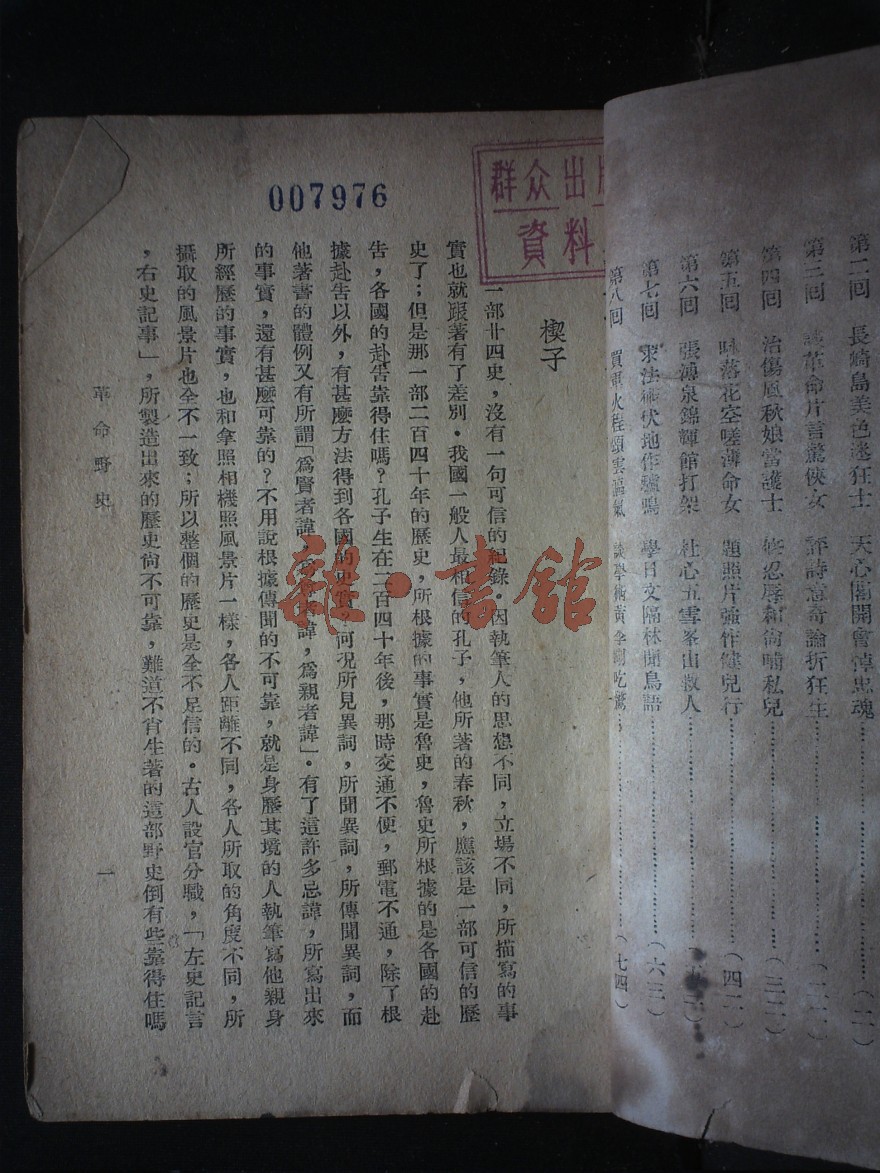 第二回　長崎島美色迷狂士　天心閣開會悼忠魂………(一一)
第三回　革命片言驚俠女　評詩意奇論折狂生………(二一)
第四回　治傷風秋娘當護士　忍辱和尚哺私兒………(三二)
第五回　咏落花空嗟薄命女　題照片強作健兒行………(四二)
第六回　張溥泉錦輝館打架　杜心五雲峯山救人………
第七回　求法術伏地作驢鳴　學日文隔林聞鳥語………(六三)
第八回　程頌雲　談學術黃季剛吃驚………(七四)
群众出版
資料
007976
楔子
一部廿四史，沒有一句可信的紀錄。因執筆人的思想不同，立場不同，所描寫的事
實也就跟著有了差別。我國一般人最相信的孔子，他所著的春秋，應該是一部可信的歷
史了；但是那一部二百四十年的歷史，所根據的事實是魯史，魯史所根據的是各國的赴
告，各國的赴告靠得住嗎？孔子生在二百四十年後，那時交通不便，郵電不通，除了根
據赴告以外，有甚麼方法得到各國的史實？何況所見異詞，所聞異詞，所傳聞異詞，而
他著書的體例又有所謂「爲賢者諱，爲尊者諱，爲親者諱」。有了這許多忌諱，所寫出來
的事實，還有甚麼可靠的？不用說根據傳聞的不可靠，就是身歷其境的人執筆寫他親身
所經歷的事實，也和拿照相機照風景片一樣，各人距離不同，各人所取的角度不同，所
攝取的風景片也全不一致；所以整個的歷史是全不足信的。古人設官分職，「左史記言
，右史記事」，所製造出來的歷史尙不可靠，難道不肖生著的這部野史倒有些靠得住嗎
革命野史
一
雜·書館